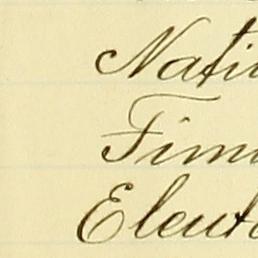 Nati
Tim
Eleut